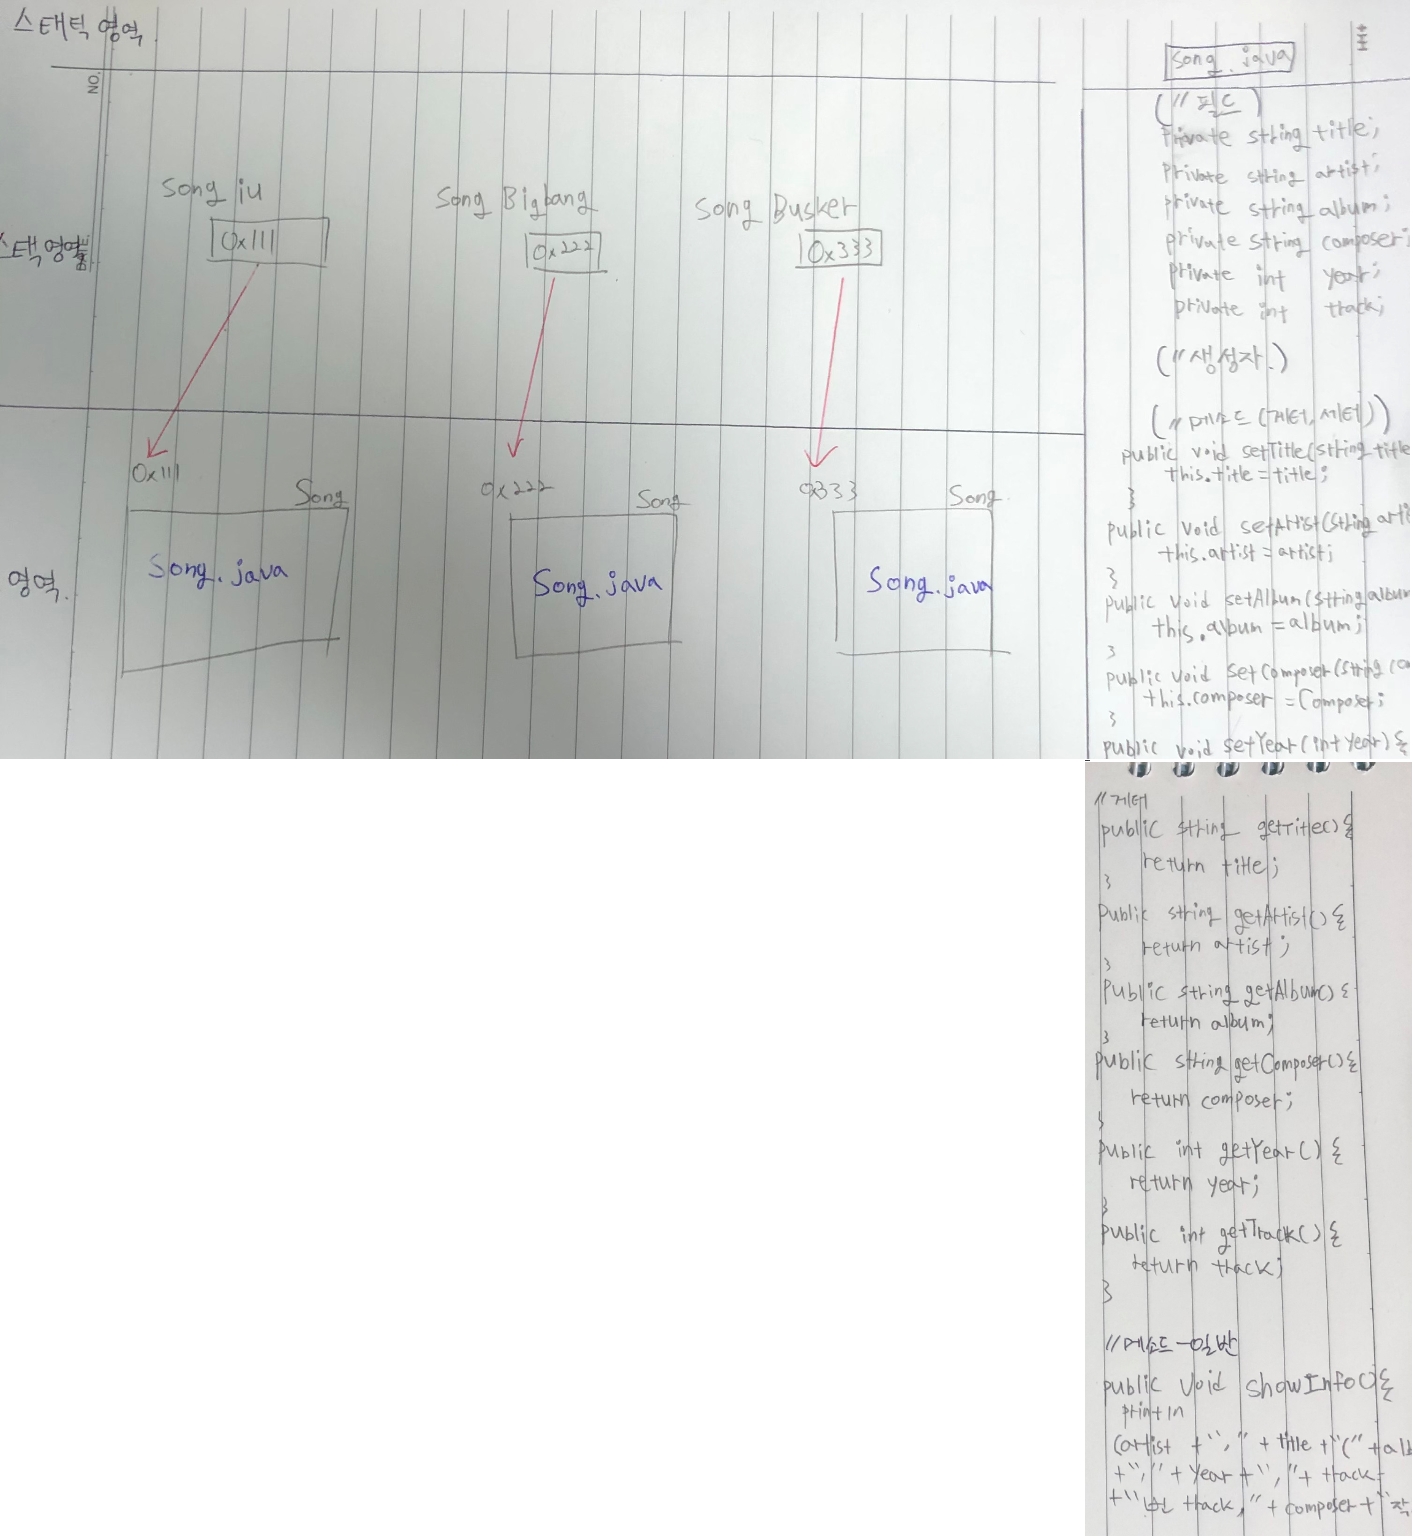 스태틱 영역.
NO.
Song iu
Song Bigbang
Song Busker
스택 영역
0x111
0x222
0x333
0x111
Song
0x222
Song
0x333
Song
영역.
Song.java
Song.java
Song.java
Song.java
(// 필드)
private string title;
private string artist;
private string album;
private string composer;
private int year;
private int track;
(// 생성자.)
(// 메소드 (게터, 세터))
public void setTitle(string title
this.title = title;
}
public void setArtist(string arti
this.artist = artist;
}
public void setAlbum(string album
this.album = album;
}
public void setComposer(string co
this.composer = Composer;
}
public void setYear(int year){
// 게터
public string getTitle(){
return title;
}
public string getArtist(){
return artist;
}
public string getAlbum(){
return album;
}
public string getComposer(){
return composer;
}
public int getYear(){
return year;
}
public int getTrack(){
return track;
}
// 메소드 - 일반
public void showInfo(){
println
(artist + "," + title + "(" + alb
+ "," + year + "," + track
+ "번 track," + composer + "작